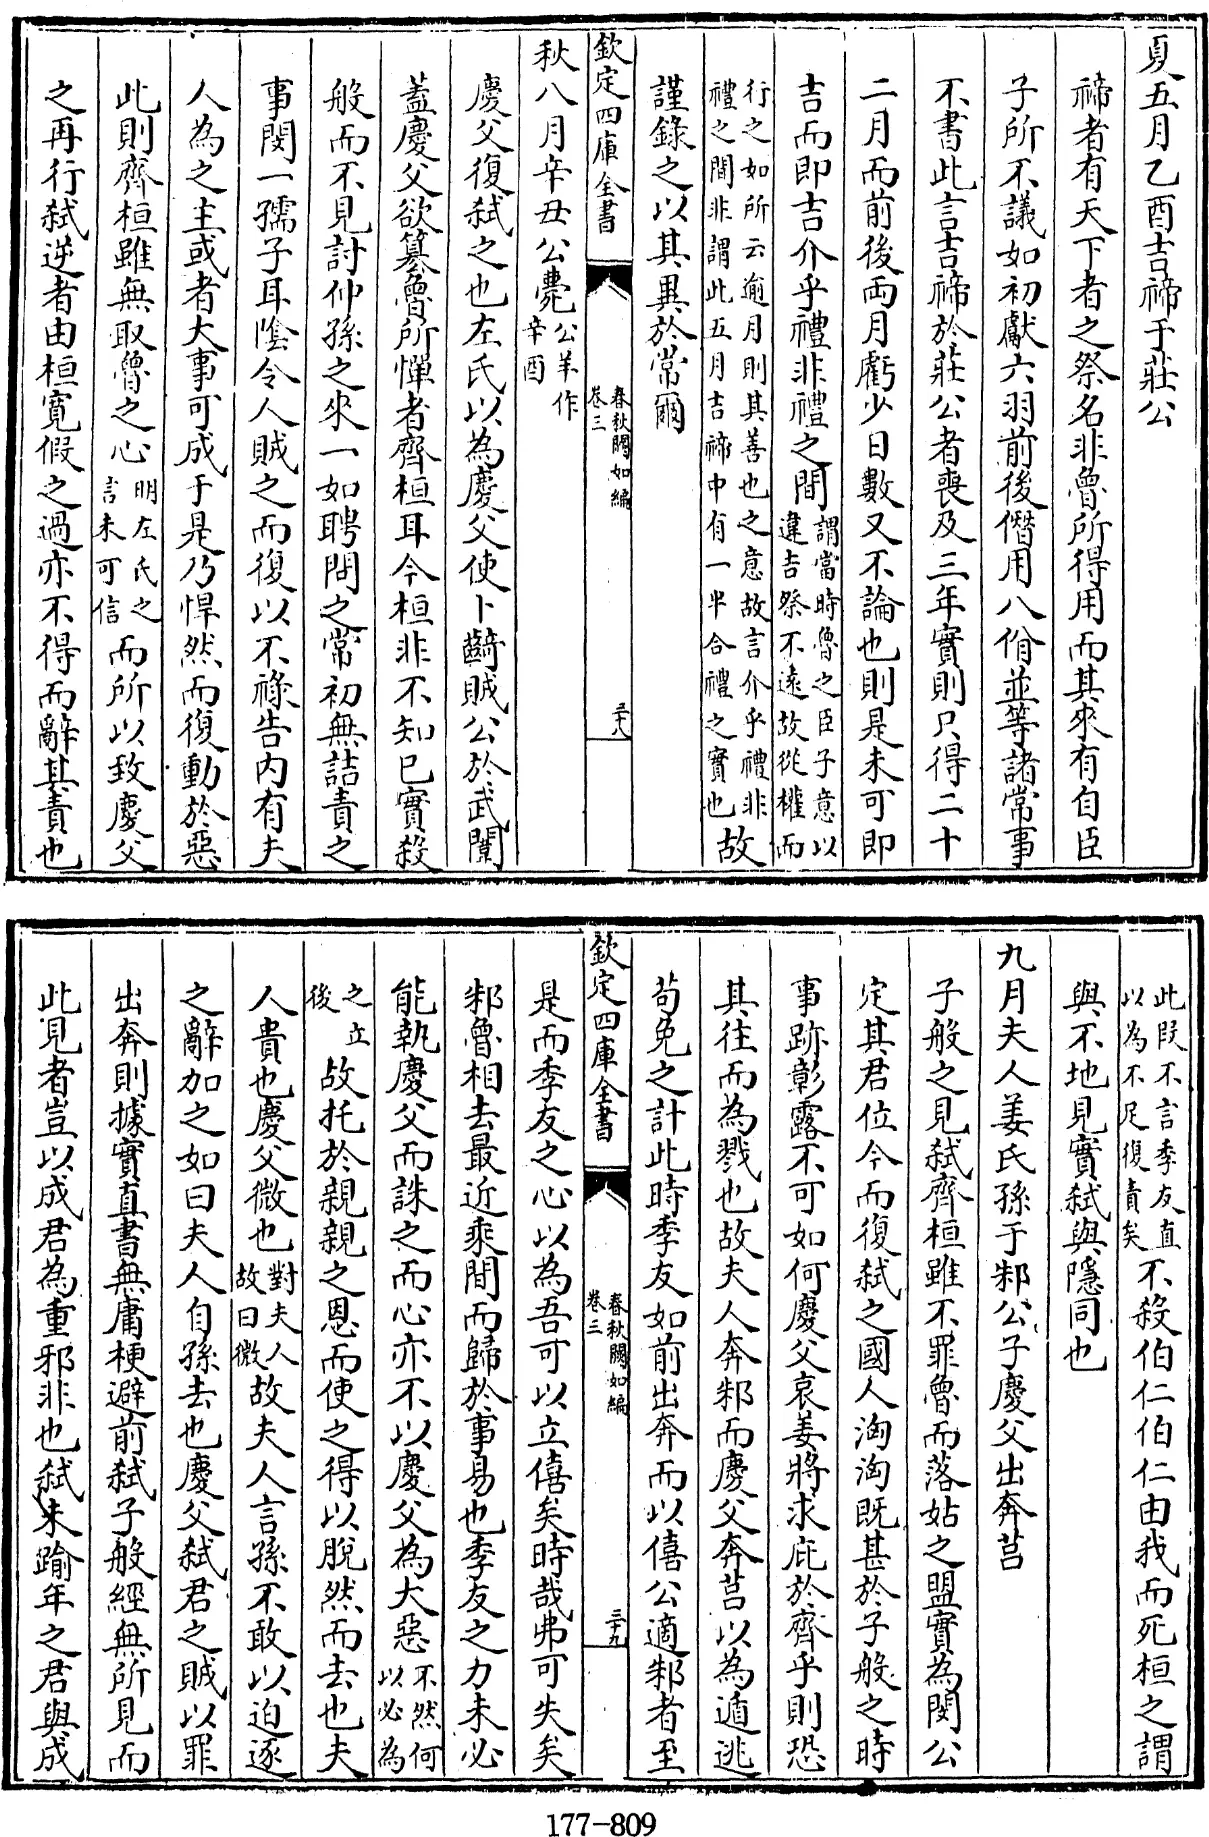 夏五月乙酉吉禘于莊公
禘者有天下者之祭名非魯所得用而其來有自臣
子所不議如初獻六羽前後僭用八佾並等諸常事
不書此言吉禘於莊公者喪及三年實則只得二十
二月而前後兩月虧少日數又不論也則是未可即
吉而即吉介乎禮非禮之間謂當時魯之臣子意以違吉祭不遠故從權而
行之如所云逾月則其善也之意故言介乎禮非禮之間非謂此五月吉禘中有一半合禮之實也故
謹錄之以其異於常爾
欽定四庫全書
春秋闕如編
卷三
三十八
秋八月辛丑公薨公羊作辛酉
慶父復弒之也左氏以為慶父使卜齮賊公於武闈
蓋慶父欲簒魯所憚者齊桓耳今桓非不知已實殺
般而不見討仲孫之來一如聘問之常初無詰責之
事閔一孺子耳隂令人賊之而復以不祿告内有夫
人為之主或者大事可成于是乃悍然而復動於惡
此則齊桓雖無取魯之心明左氏之言未可信而所以致慶父
之再行弒逆者由桓寛假之過亦不得而辭其責也
此段不言季友直以為不足復責矣不殺伯仁伯仁由我而死桓之謂
與不地見實弒與隱同也
九月夫人姜氏孫于邾公子慶父出奔莒
子般之見弒齊桓雖不罪魯而落姑之盟實為閔公
定其君位今而復弒之國人洶洶既甚於子般之時
事跡彰露不可如何慶父哀姜將求庇於齊乎則恐
其往而為戮也故夫人奔邾而慶父奔莒以為遁逃
苟免之計此時季友如前出奔而以僖公適邾者至
欽定四庫全書
春秋闕如編
卷三
三十九
是而季友之心以為吾可以立僖矣時哉弗可失矣
邾魯相去最近乘間而歸於事易也季友之力未必
能執慶父而誅之而心亦不以慶父為大惡不然何以必為
之立後故托於親親之恩而使之得以脫然而去也夫
人貴也慶父微也對夫人故曰微故夫人言孫不敢以迫逐
之辭加之如曰夫人自孫去也慶父弒君之賊以罪
出奔則據實直書無庸梗避前弒子般經無所見而
此見者豈以成君為重邪非也弒未踰年之君與成
177-809